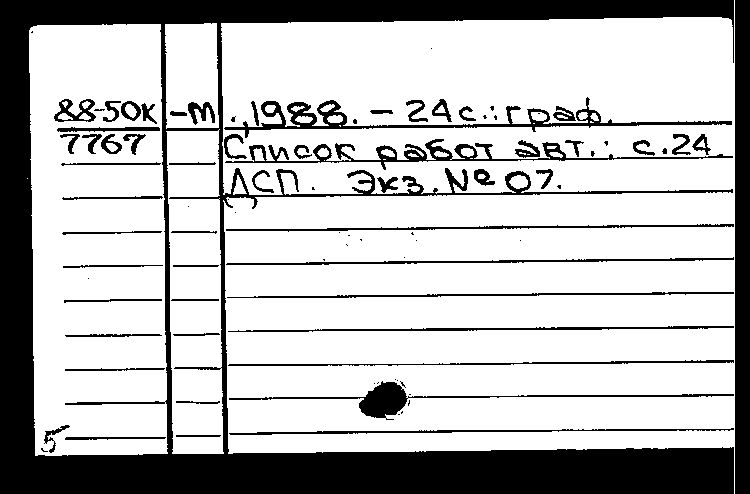 88-50к -м ., 1988. - 24 с.: граф.
7767 Список работ авт.: с.24.
ДСП. Экз. № 07.
5